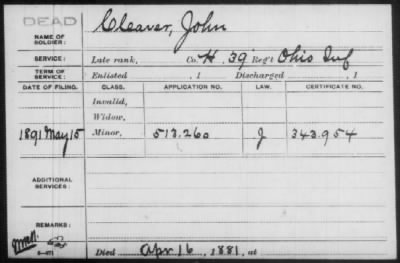 DEAD
NAME OF SOLDIER: Cleaver, John
SERVICE: Late rank, Co. H, 39 Reg't Ohio Inf
TERM OF SERVICE: Enlisted , 1 Discharged , 1
DATE OF FILING. CLASS. APPLICATION NO. LAW. CERTIFICATE NO.
Invalid,
Widow,
1891 May 15 Minor, 513.260 J 343.954
ADDITIONAL SERVICES:
REMARKS:
Died Apr 16, 1881, at